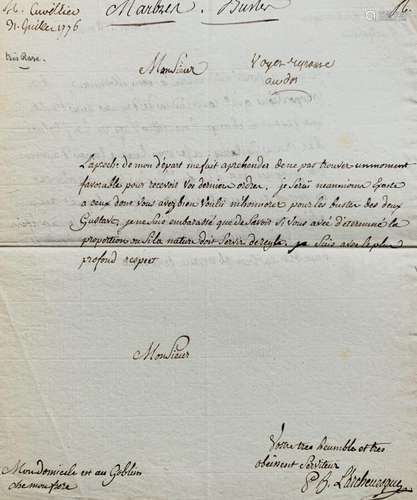 M. Cuvillier
31. Juillet 1776
Marbres. Bustes
très Rare.
Monsieur
Voyez reponse
au dos
L'aproch. de mon départ me fait aprehender de ne par trouver un moment
favorable pour recevoir vos dernier ordre. je serai neanmoins Exacte
a ceux dont vous avez bien voulü m'honnorer pour les buster des deux
Gustave, je ne suis embarassé que de savoir si vous avée déterminé la
proportion ou si la nature doit servir de regle. je suis avec le plus
profond respect
Monsieur
Votre tres heumble et tres
obeissent Serviteur
P. h. L'archevesque
Mon domicile est au Goblin
che mon frere